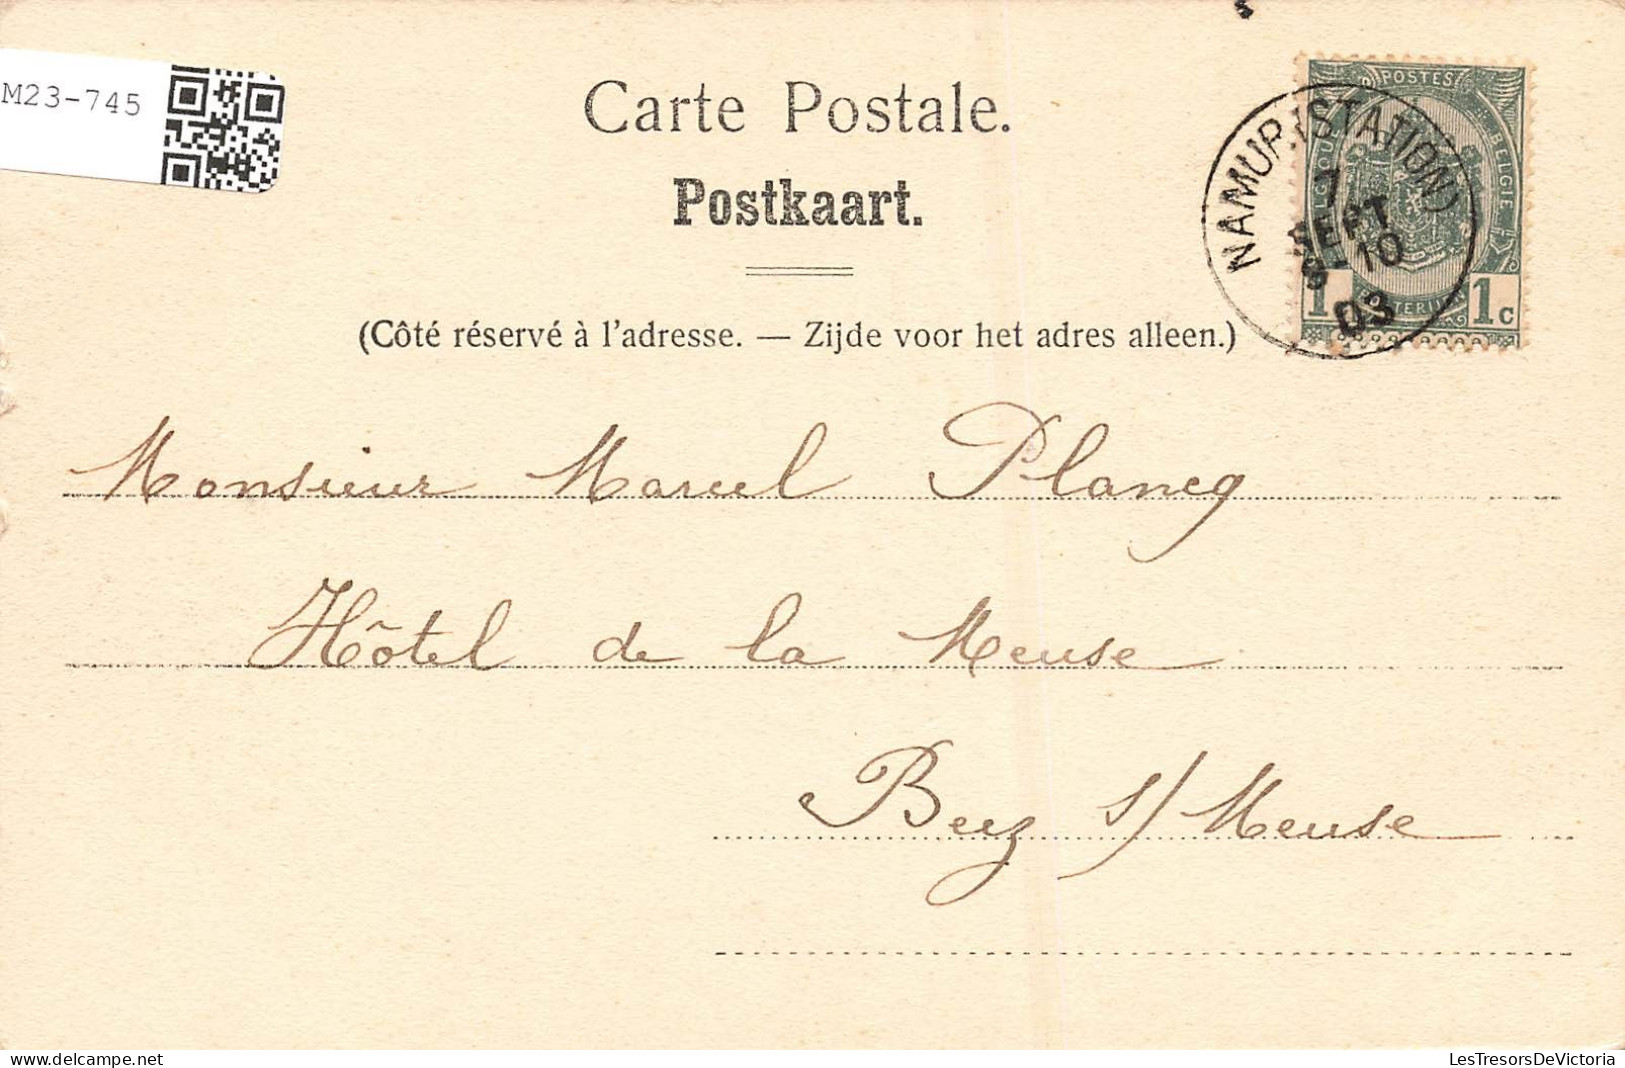 M23-745
Carte Postale.
Postkaart.
(Côté réservé à l'adresse. — Zijde voor het adres alleen.)
POSTES
BELGIE
NAMUR (STATION)
7
SEPT
9-10
03
1 1c
Monsieur Marcel Plancq
Hôtel de la Meuse
Beez s/Meuse
delcampe.net
LesTresorsDeVictoria